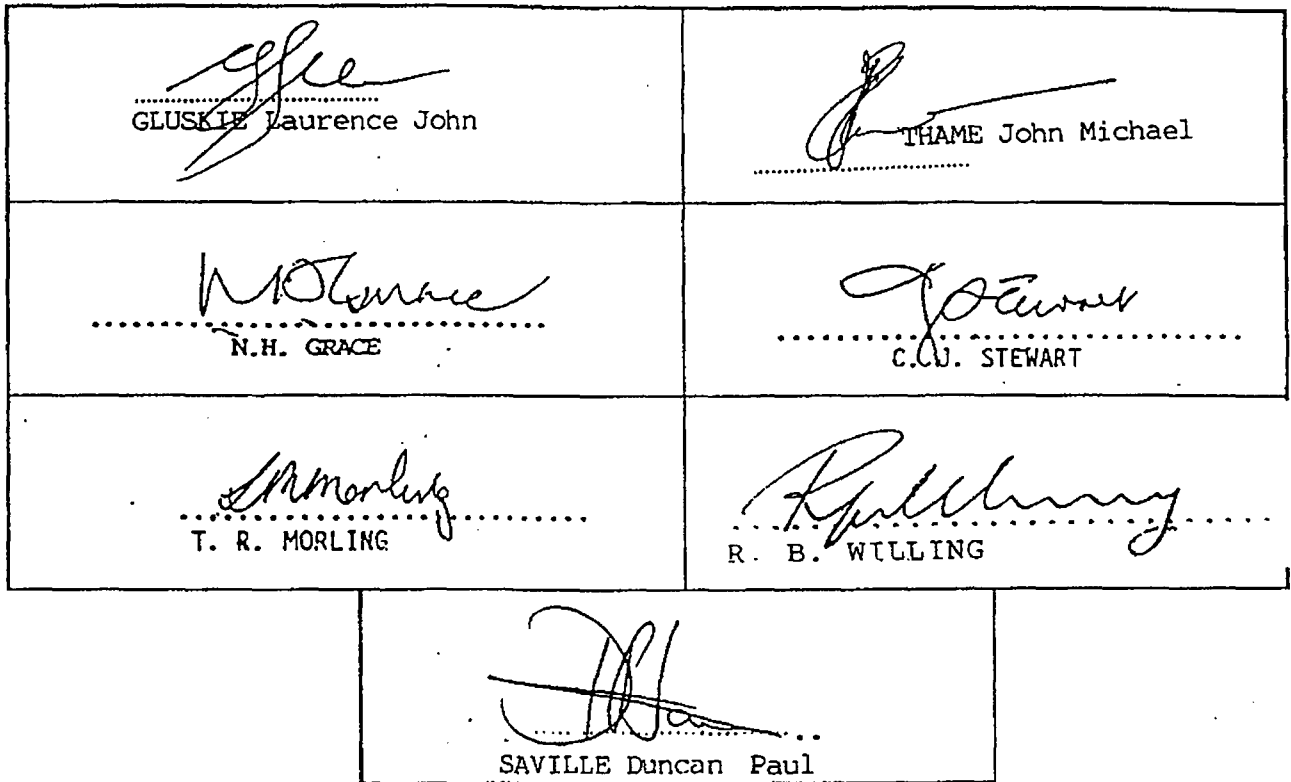 GLUSKIE Laurence John
THAME John Michael
N.H. GRACE
C. J. STEWART
T. R. MORLING
R. B. WILLING
SAVILLE Duncan Paul